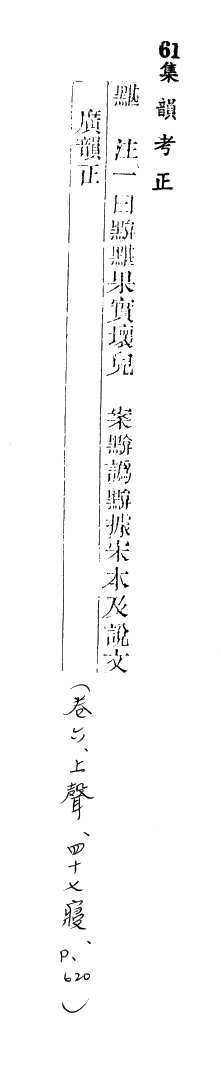 61集韻考正
黮 注一曰黮果實壞皃 案譌據宋本及說文
廣韻正
(卷六、上聲、四十七寢、P、620)